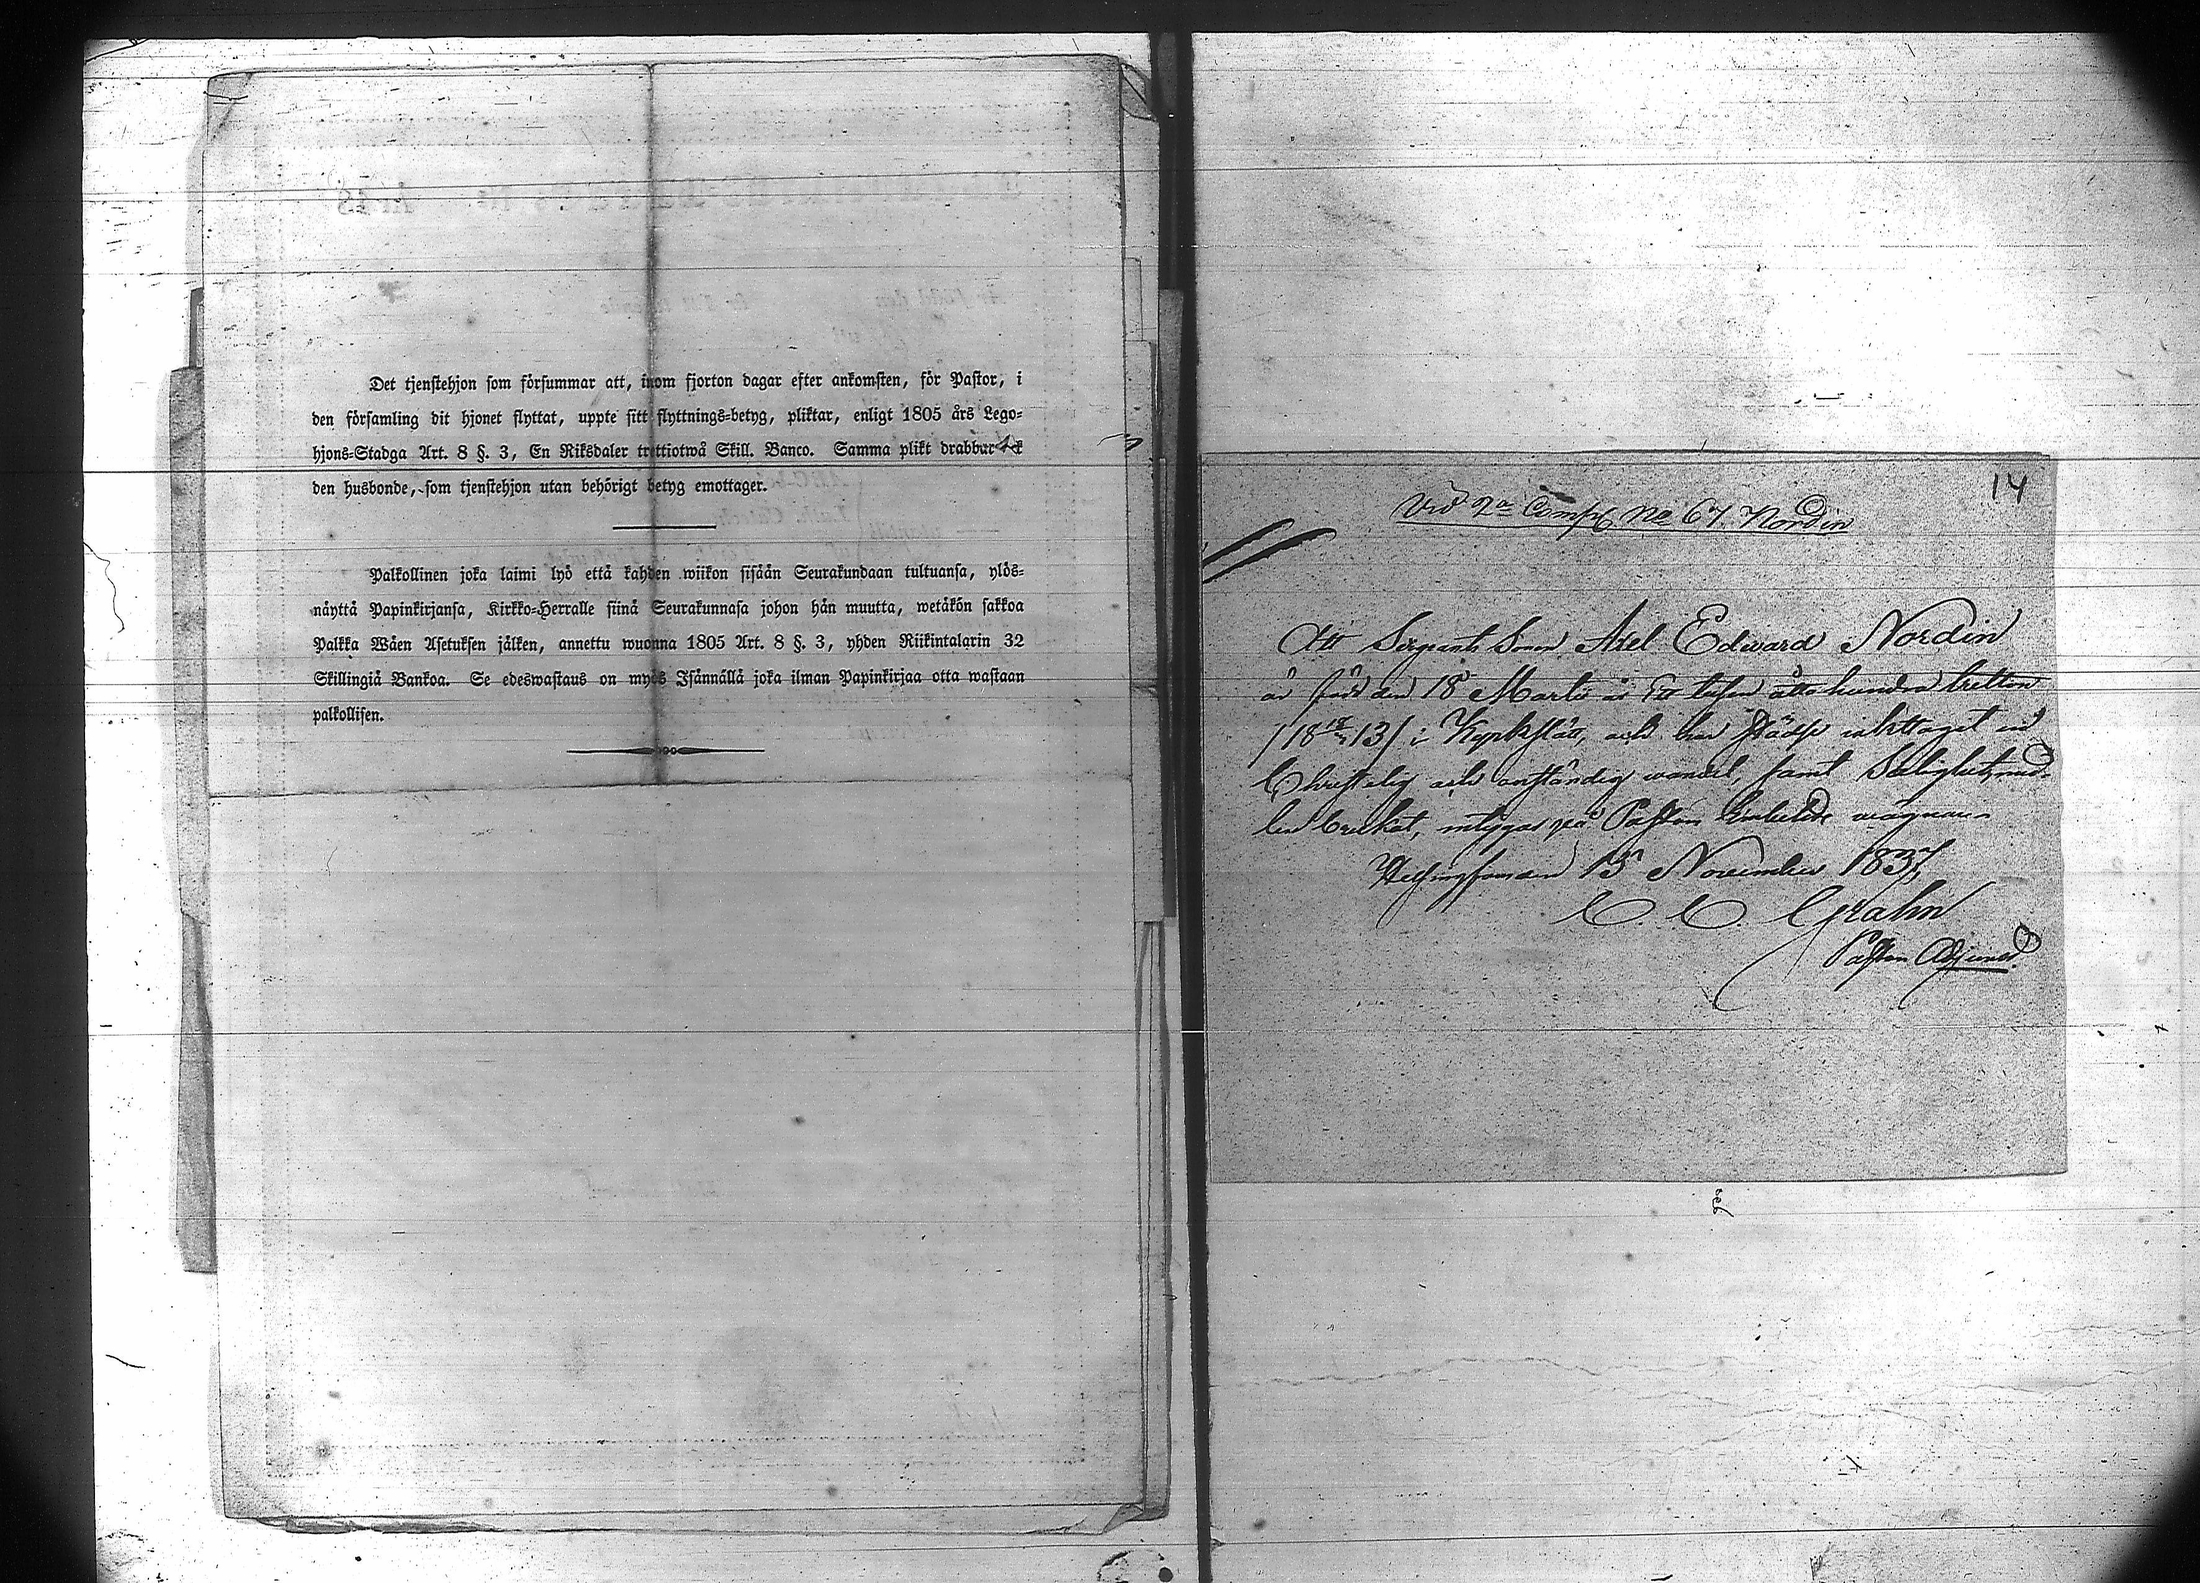 Det tjenstehjon som försummar att, inom fjorton dagar efter ankomsten, för Pastor, i
den församling dit hjonet flyttat, uppte sitt flyttnings=betyg, pliktar, enligt 1805 års Lego=
hjons=Stadga Art. 8 §. 3, En Riksdaler trettiotwå Skill. Banco. Samma plikt drabbar
den husbonde, som tjenstehjon utan behörigt betyg emottager.
Palkollinen joka laimi lyö että kahden wiikon sisään Seurakundaan tultuansa, ylös=
näyttä Papinkirjansa, Kirkko=Herralle siinä Seurakunnasa johon hän muutta, wetäkön sakkoa
Palkka Wäen Asetuksen jälken, annettu wuonna 1805 Art. 8 §. 3, yhden Riikintalarin 32
Skillingiä Bankoa. Se edeswastaus on myös Isännällä joka ilman Papinkirjaa otta wastaan
palkollisen.
14
Vid 2a Comp No 67 Nordin
Att Sergeants Sonen Axel Edward Nordin
är född den 18 Martii år Ett tusen åtta hundra tretton
/18 13/ i Kyrkslätt, och har städse iakttagit en
Christelig och anständig wandel, samt Salighetsmed-
len brukat, intygas på Pastors Embetets wägnar.
Helsingfors den 15 November 1837,
C. C. Grahn
Pastors Adjunct.